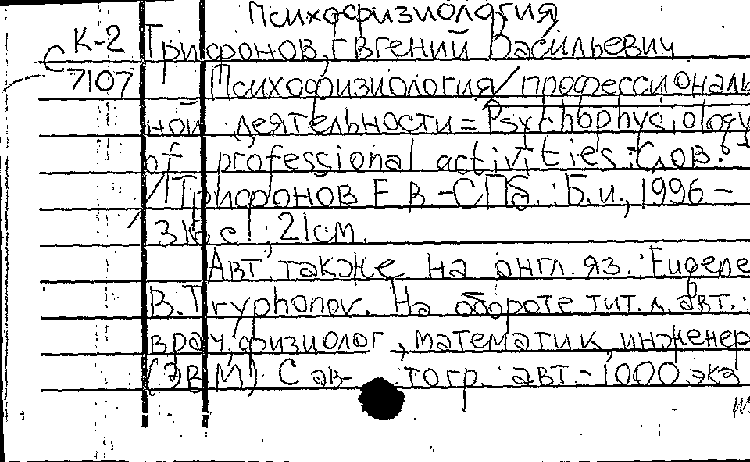 Психофизиология
К-2 Трифонов, Евгений Васильевич
С 7107 Психофизиология профессиональ
ной деятельности = Psychophysiology
of professional activities: Слов.
/ Трифонов Е В - СПб.: Б.и., 1996 -
316 с.; 21 см.
Авт. также на англ. яз.: Eugene
B. Tryphonov. На обороте тит. л. авт.:
врач, физиолог, математик, инженер
(ЭВМ). С автогр. авт. - 1000 экз